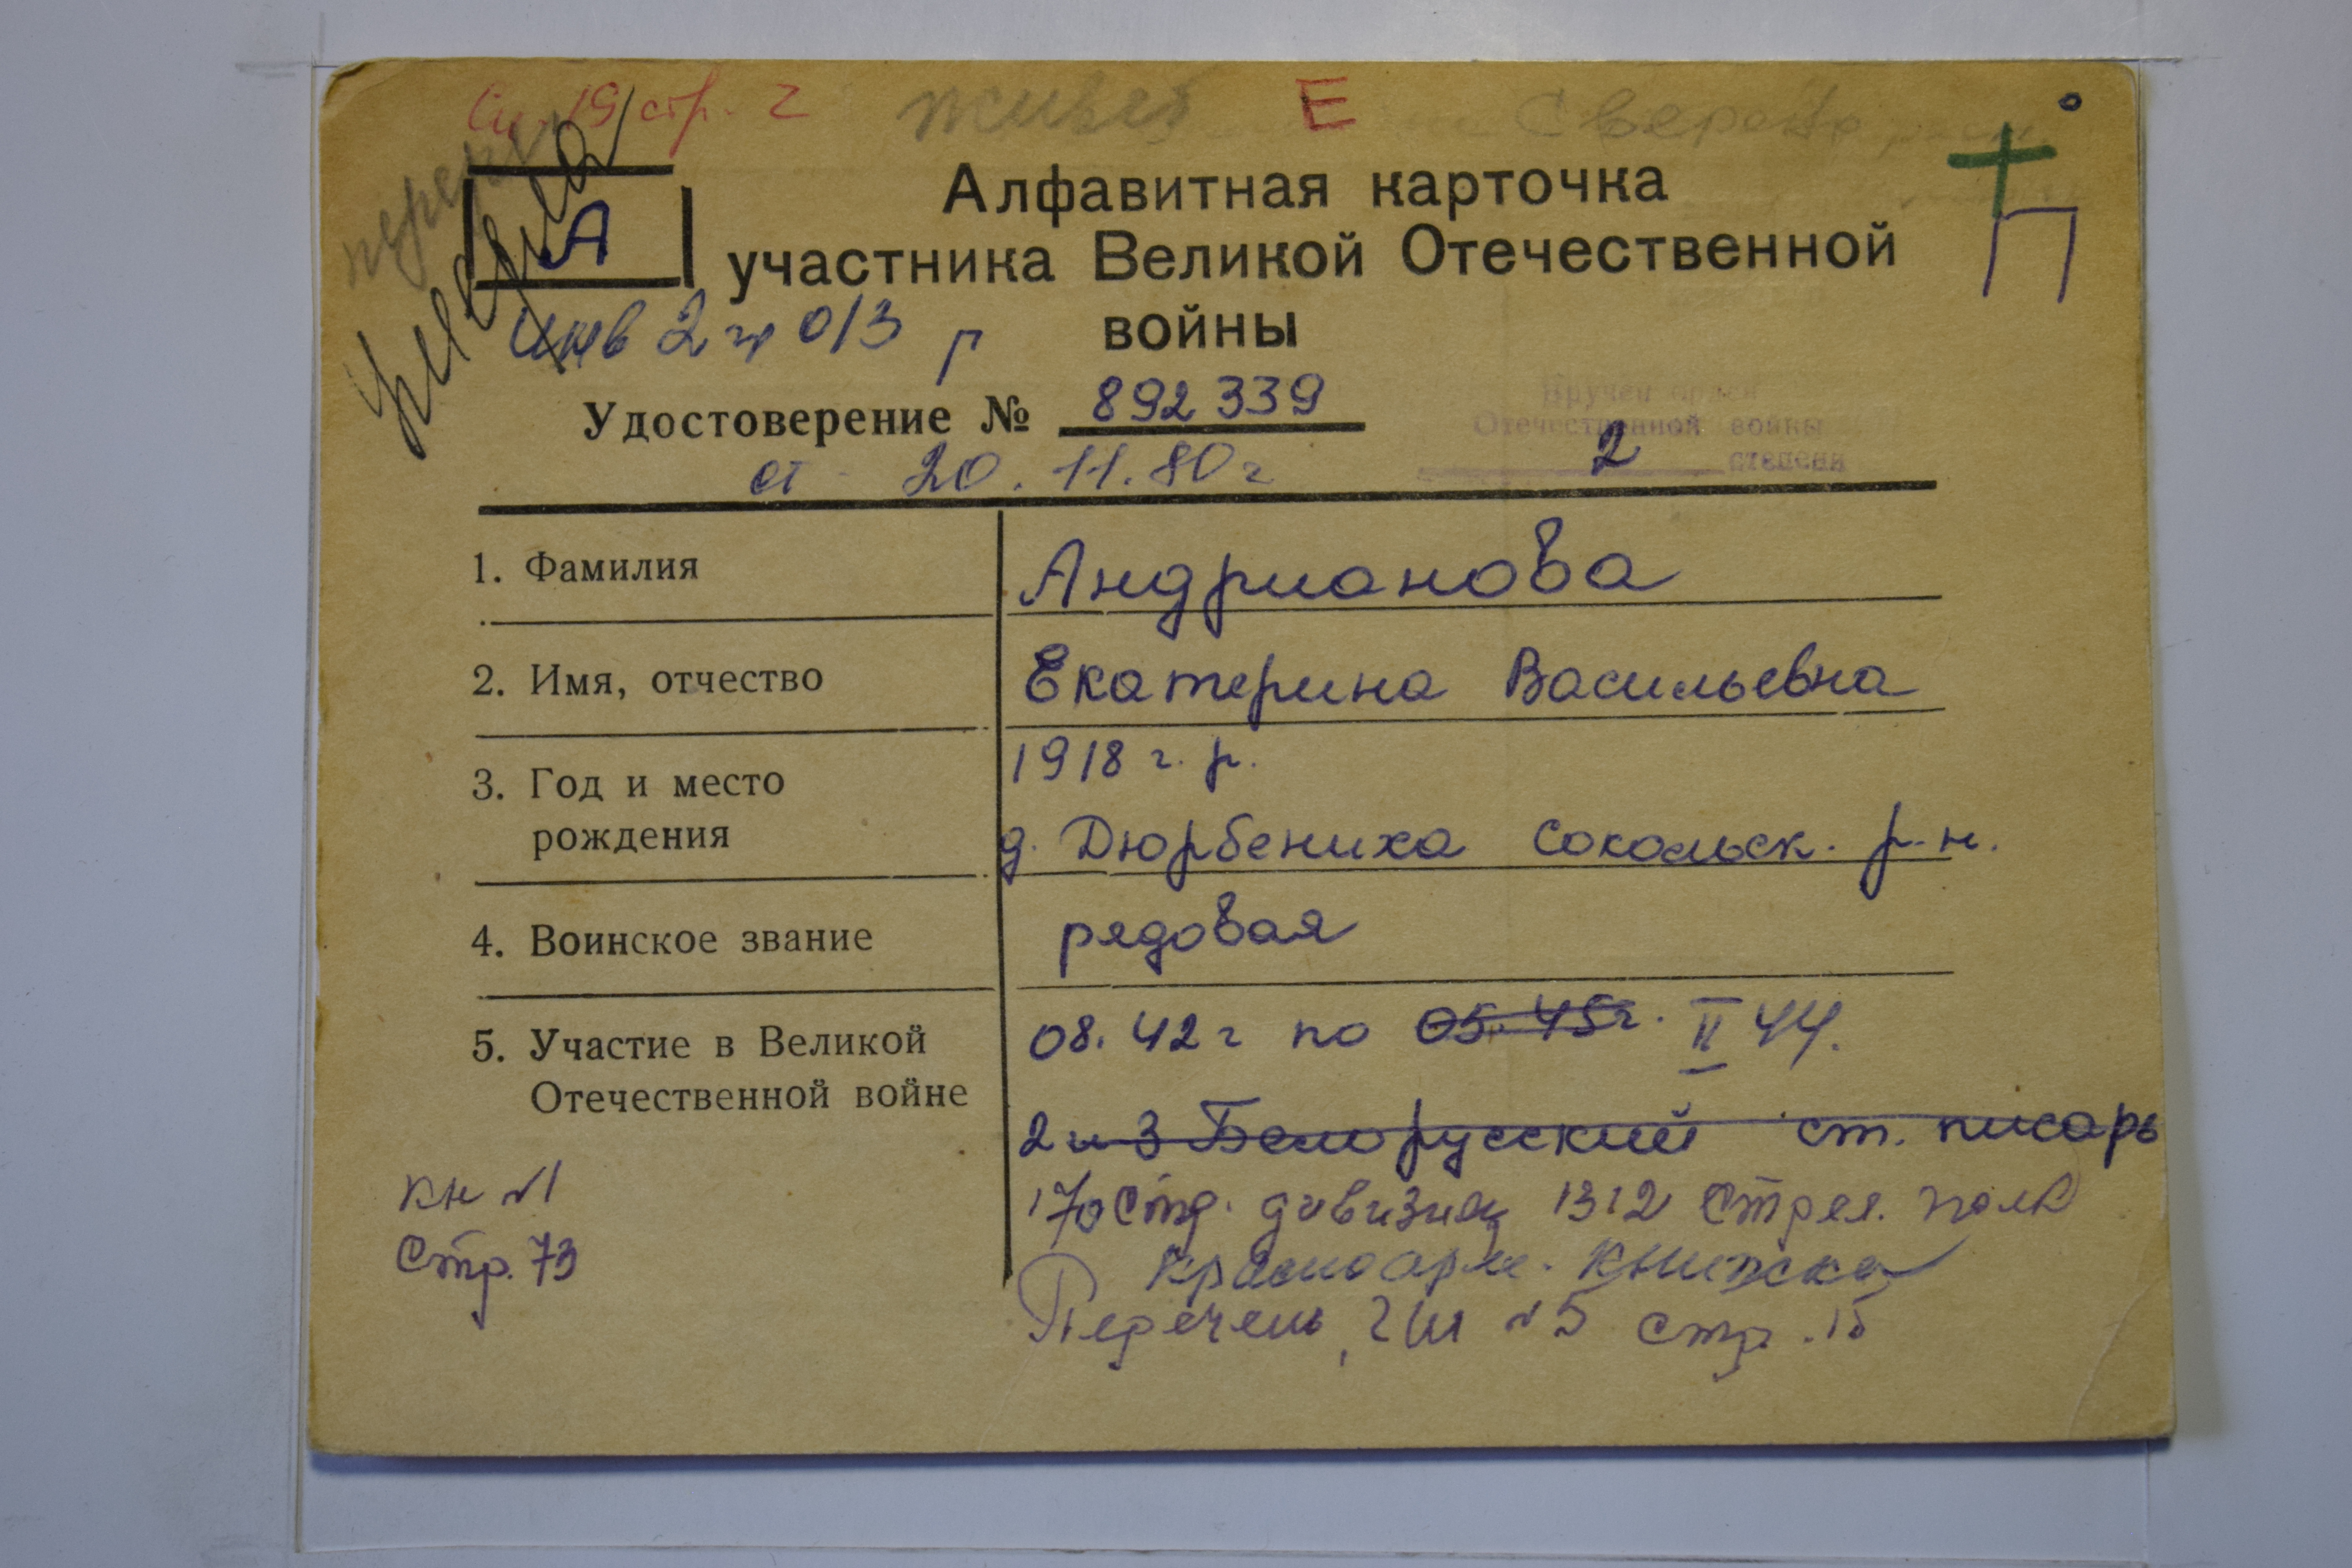 стр. 2 живет Е
А
Алфавитная карточка
участника Великой Отечественной
войны
инв 2 гр 013 р
П
Удостоверение № 892339
от 20.11.80 г
Вручен орден
Отечественной войны
2 степени
1. Фамилия Андрианова
2. Имя, отчество Екатерина Васильевна
3. Год и место 1918 г. р.
рождения д. Дюрбениха Сокольск. р-н.
4. Воинское звание рядовая
5. Участие в Великой 08. 42 г по 05. 45 г. II 44.
Отечественной войне
2 и 3 Белорусский ст. писарь
кн №1 170 стр. дивизия 1312 стрел. полк
Стр. 73 красноарм. книжка
Перечень №5 стр. 15